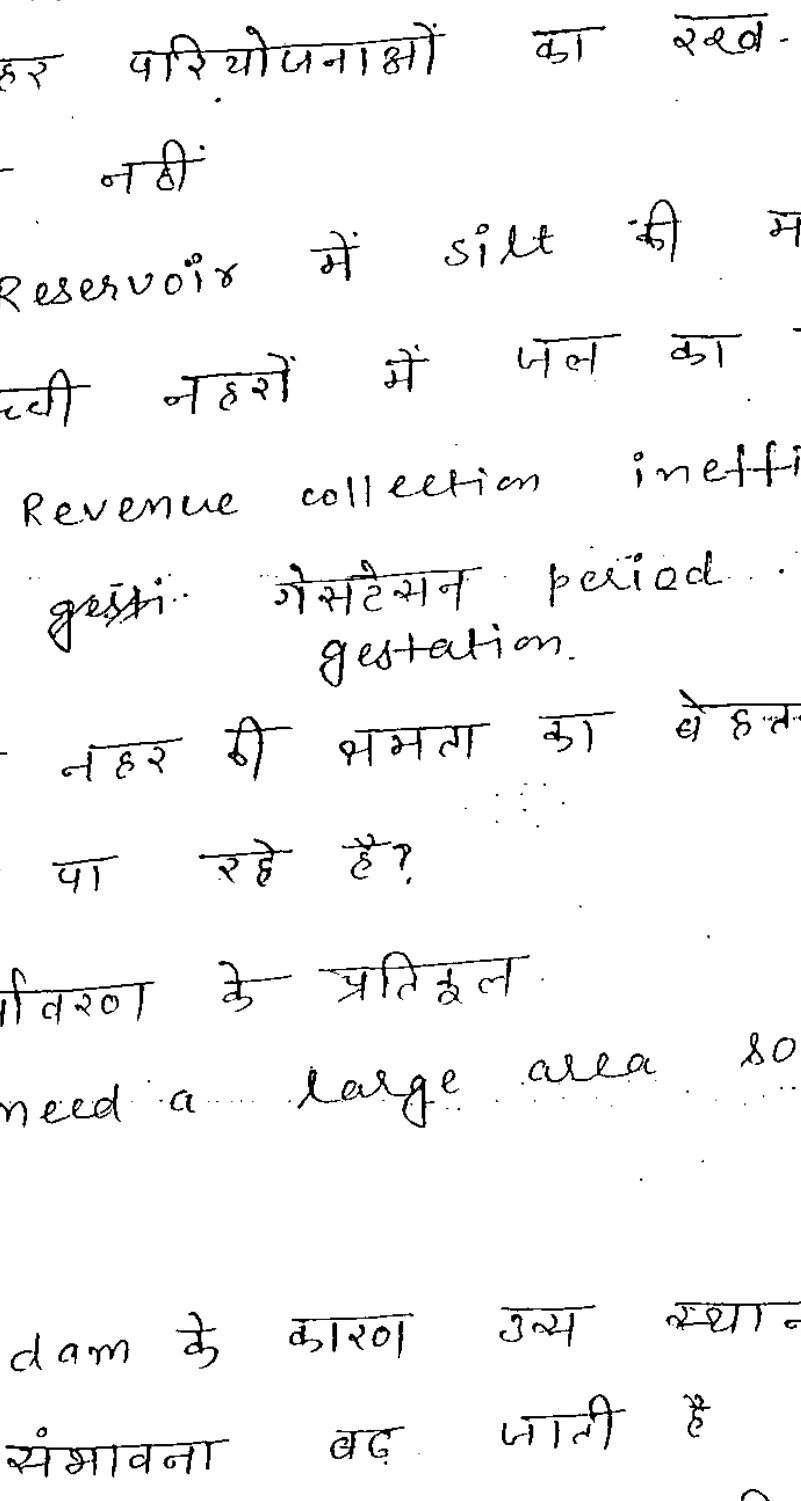 परियोजनाओं का रख-
नहीं
Reservoir में silt की
नहरों में जल का
Revenue collection ineffi
गेसटेसन period
gestation.
नहर की क्षमता का बेहत
पा रहे है?
के प्रतिकूल
need a large area so
dam के कारण उस स्थान
संभावना बढ़ जाती है